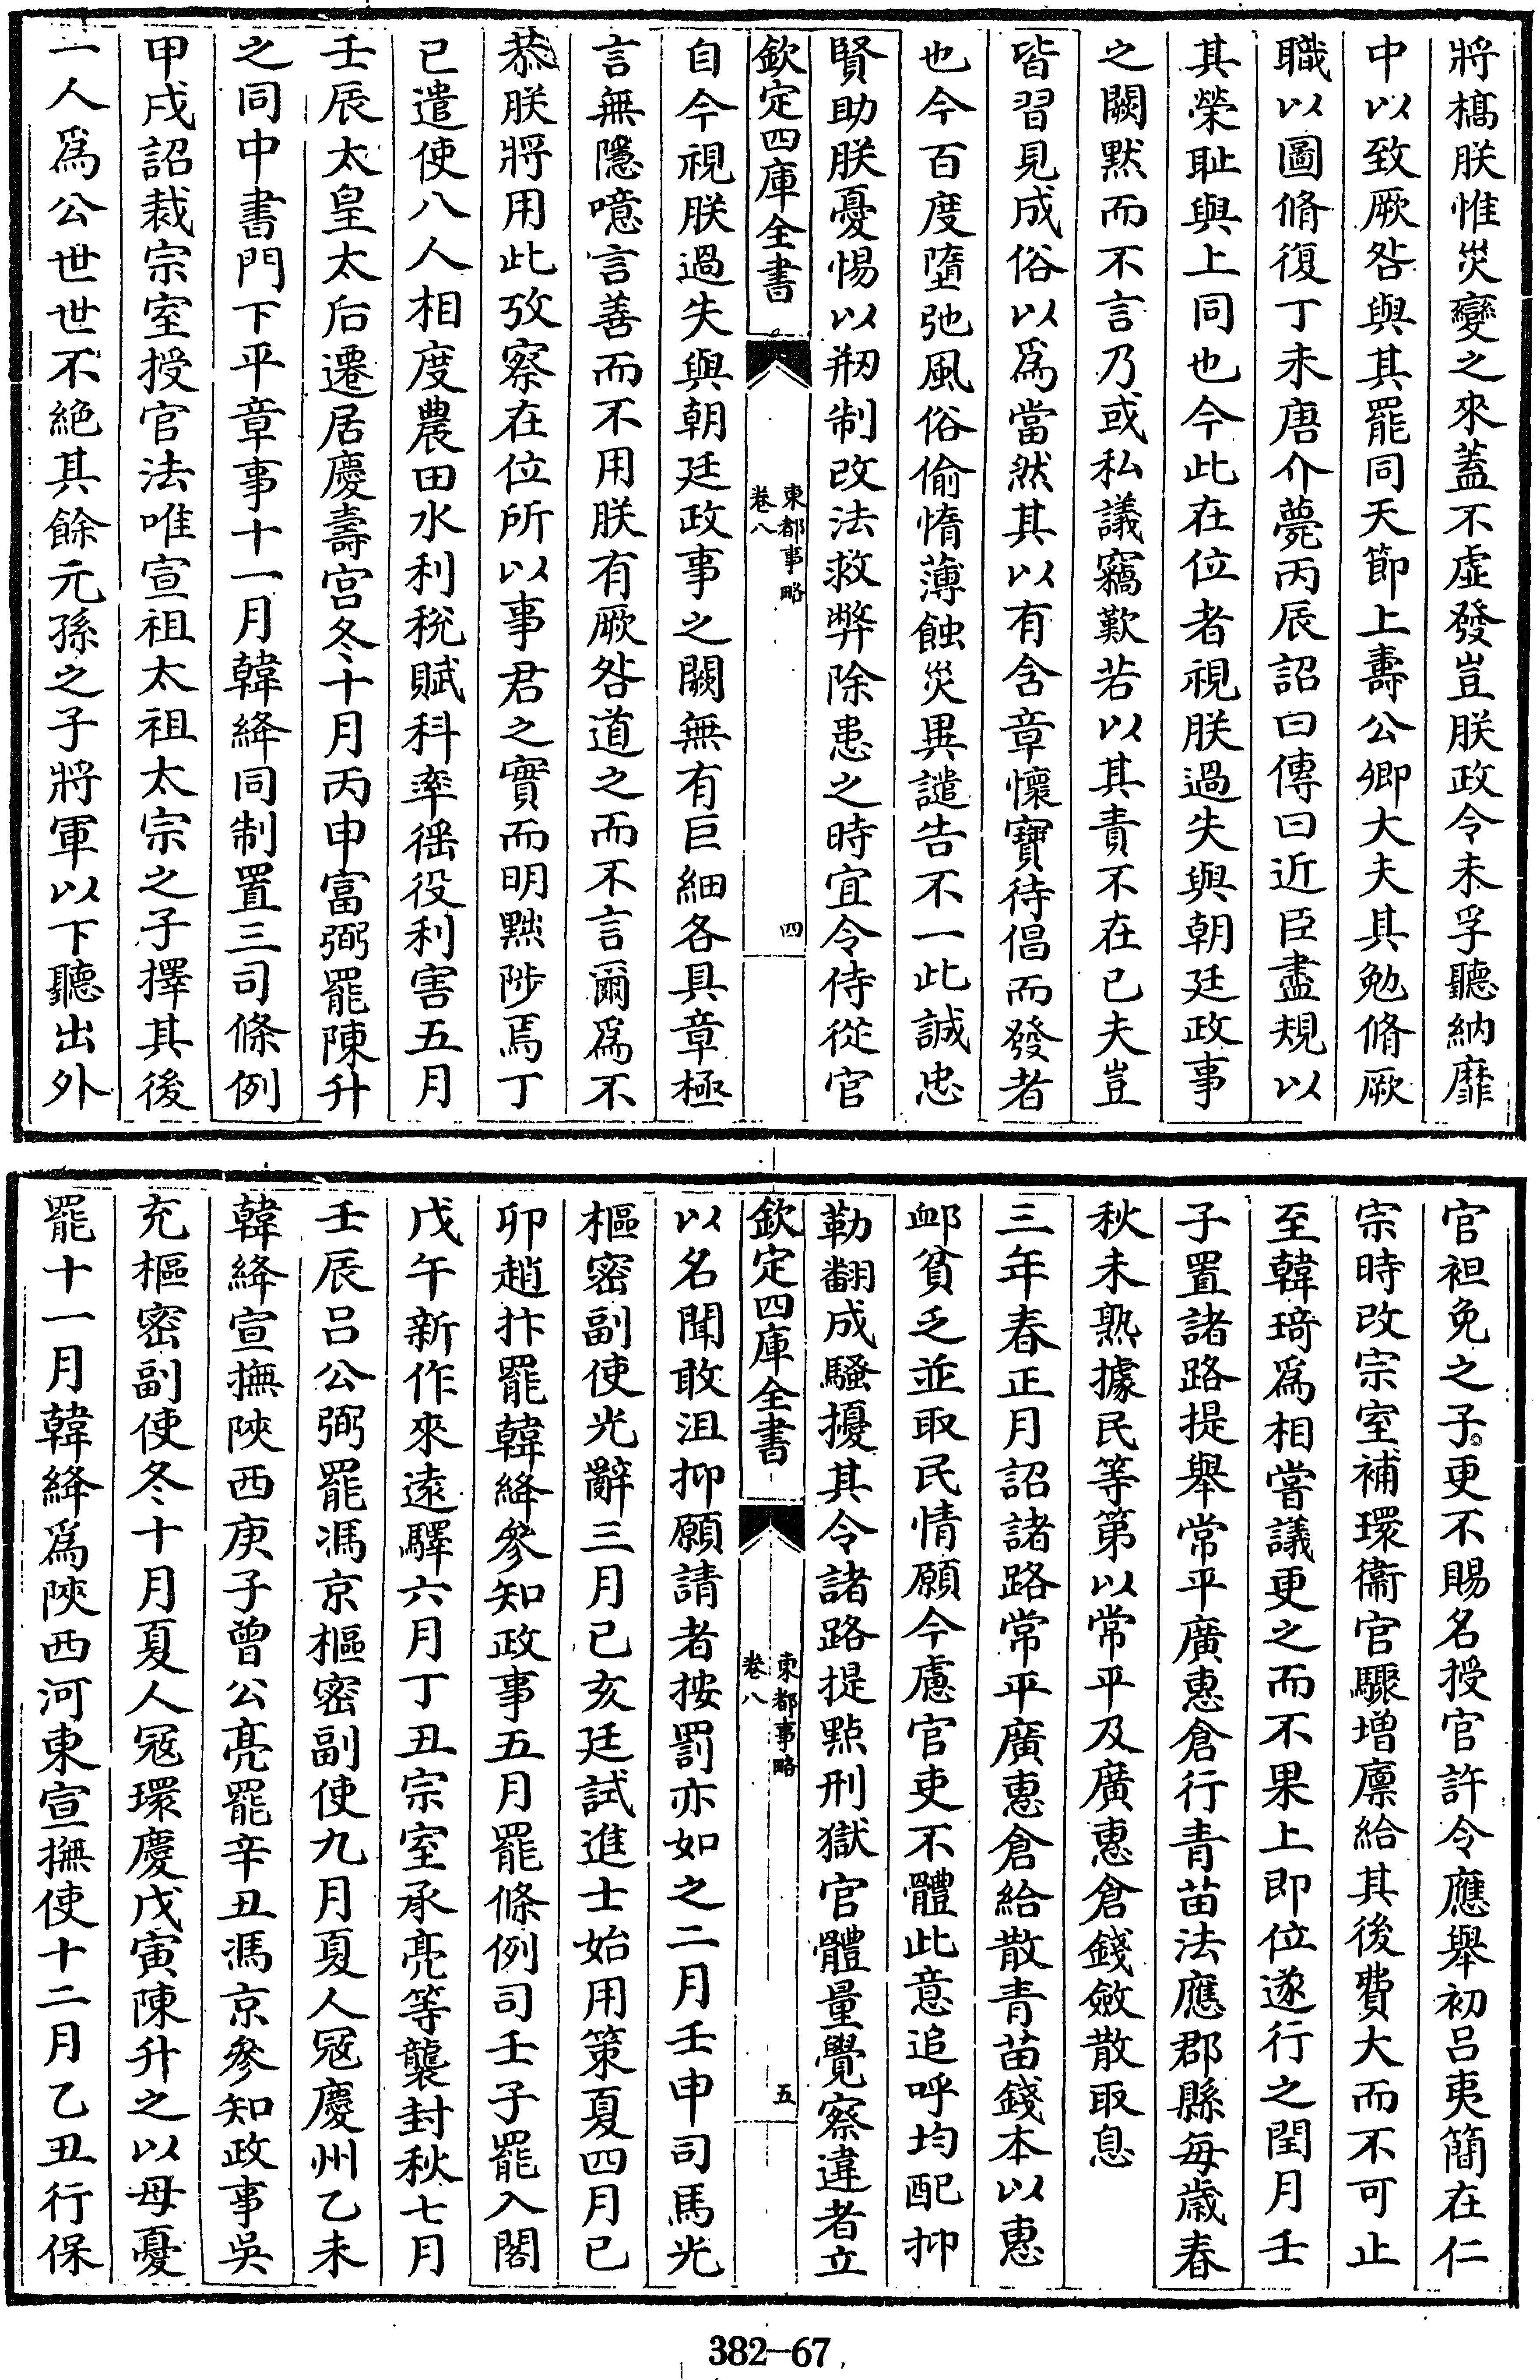 將槁朕惟災變之來蓋不虛發豈朕政令未孚聽納靡
中以致厥咎與其罷同天節上壽公卿大夫其勉脩厥
職以圖脩復丁未唐介薨丙辰詔曰傳曰近臣盡規以
其榮恥與上同也今此在位者視朕過失與朝廷政事
之闕默而不言乃或私議竊歎若以其責不在已夫豈
皆習見成俗以爲當然其以有含章懷寶待倡而發者
也今百度墮弛風俗偷惰薄蝕災異譴告不一此誠忠
賢助朕憂惕以刱制改法救弊除患之時宜令侍從官
欽定四庫全書
東都事略
卷八
四
自今視朕過失與朝廷政事之闕無有巨細各具章極
言無隱噫言善而不用朕有厥咎道之而不言爾爲不
恭朕將用此攷察在位所以事君之實而明黜陟焉丁
已遣使八人相度農田水利稅賦科率徭役利害五月
壬辰太皇太后遷居慶壽宮冬十月丙申富弼罷陳升
之同中書門下平章事十一月韓絳同制置三司條例
甲戌詔裁宗室授官法唯宣祖太祖太宗之子擇其後
一人爲公世世不絕其餘元孫之子將軍以下聽出外
官袒免之子更不賜名授官許令應舉初呂夷簡在仁
宗時改宗室補環衞官驟增廩給其後費大而不可止
至韓琦爲相嘗議更之而不果上即位遂行之閏月壬
子置諸路提舉常平廣惠倉行青苗法應郡縣每歲春
秋未熟據民等第以常平及廣惠倉錢斂散取息
三年春正月詔諸路常平廣惠倉給散青苗錢本以惠
卹貧乏並取民情願今慮官吏不體此意追呼均配抑
勒翻成騷擾其令諸路提點刑獄官體量覺察違者立
欽定四庫全書
東都事略
卷八
五
以名聞敢沮抑願請者按罰亦如之二月壬申司馬光
樞密副使光辭三月已亥廷試進士始用策夏四月已
卯趙抃罷韓絳參知政事五月罷條例司壬子罷入閤
戊午新作來遠驛六月丁丑宗室承亮等襲封秋七月
壬辰呂公弼罷馮京樞密副使九月夏人寇慶州乙未
韓絳宣撫陝西庚子曾公亮罷辛丑馮京參知政事吳
充樞密副使冬十月夏人寇環慶戊寅陳升之以母憂
罷十一月韓絳爲陝西河東宣撫使十二月乙丑行保
382-67